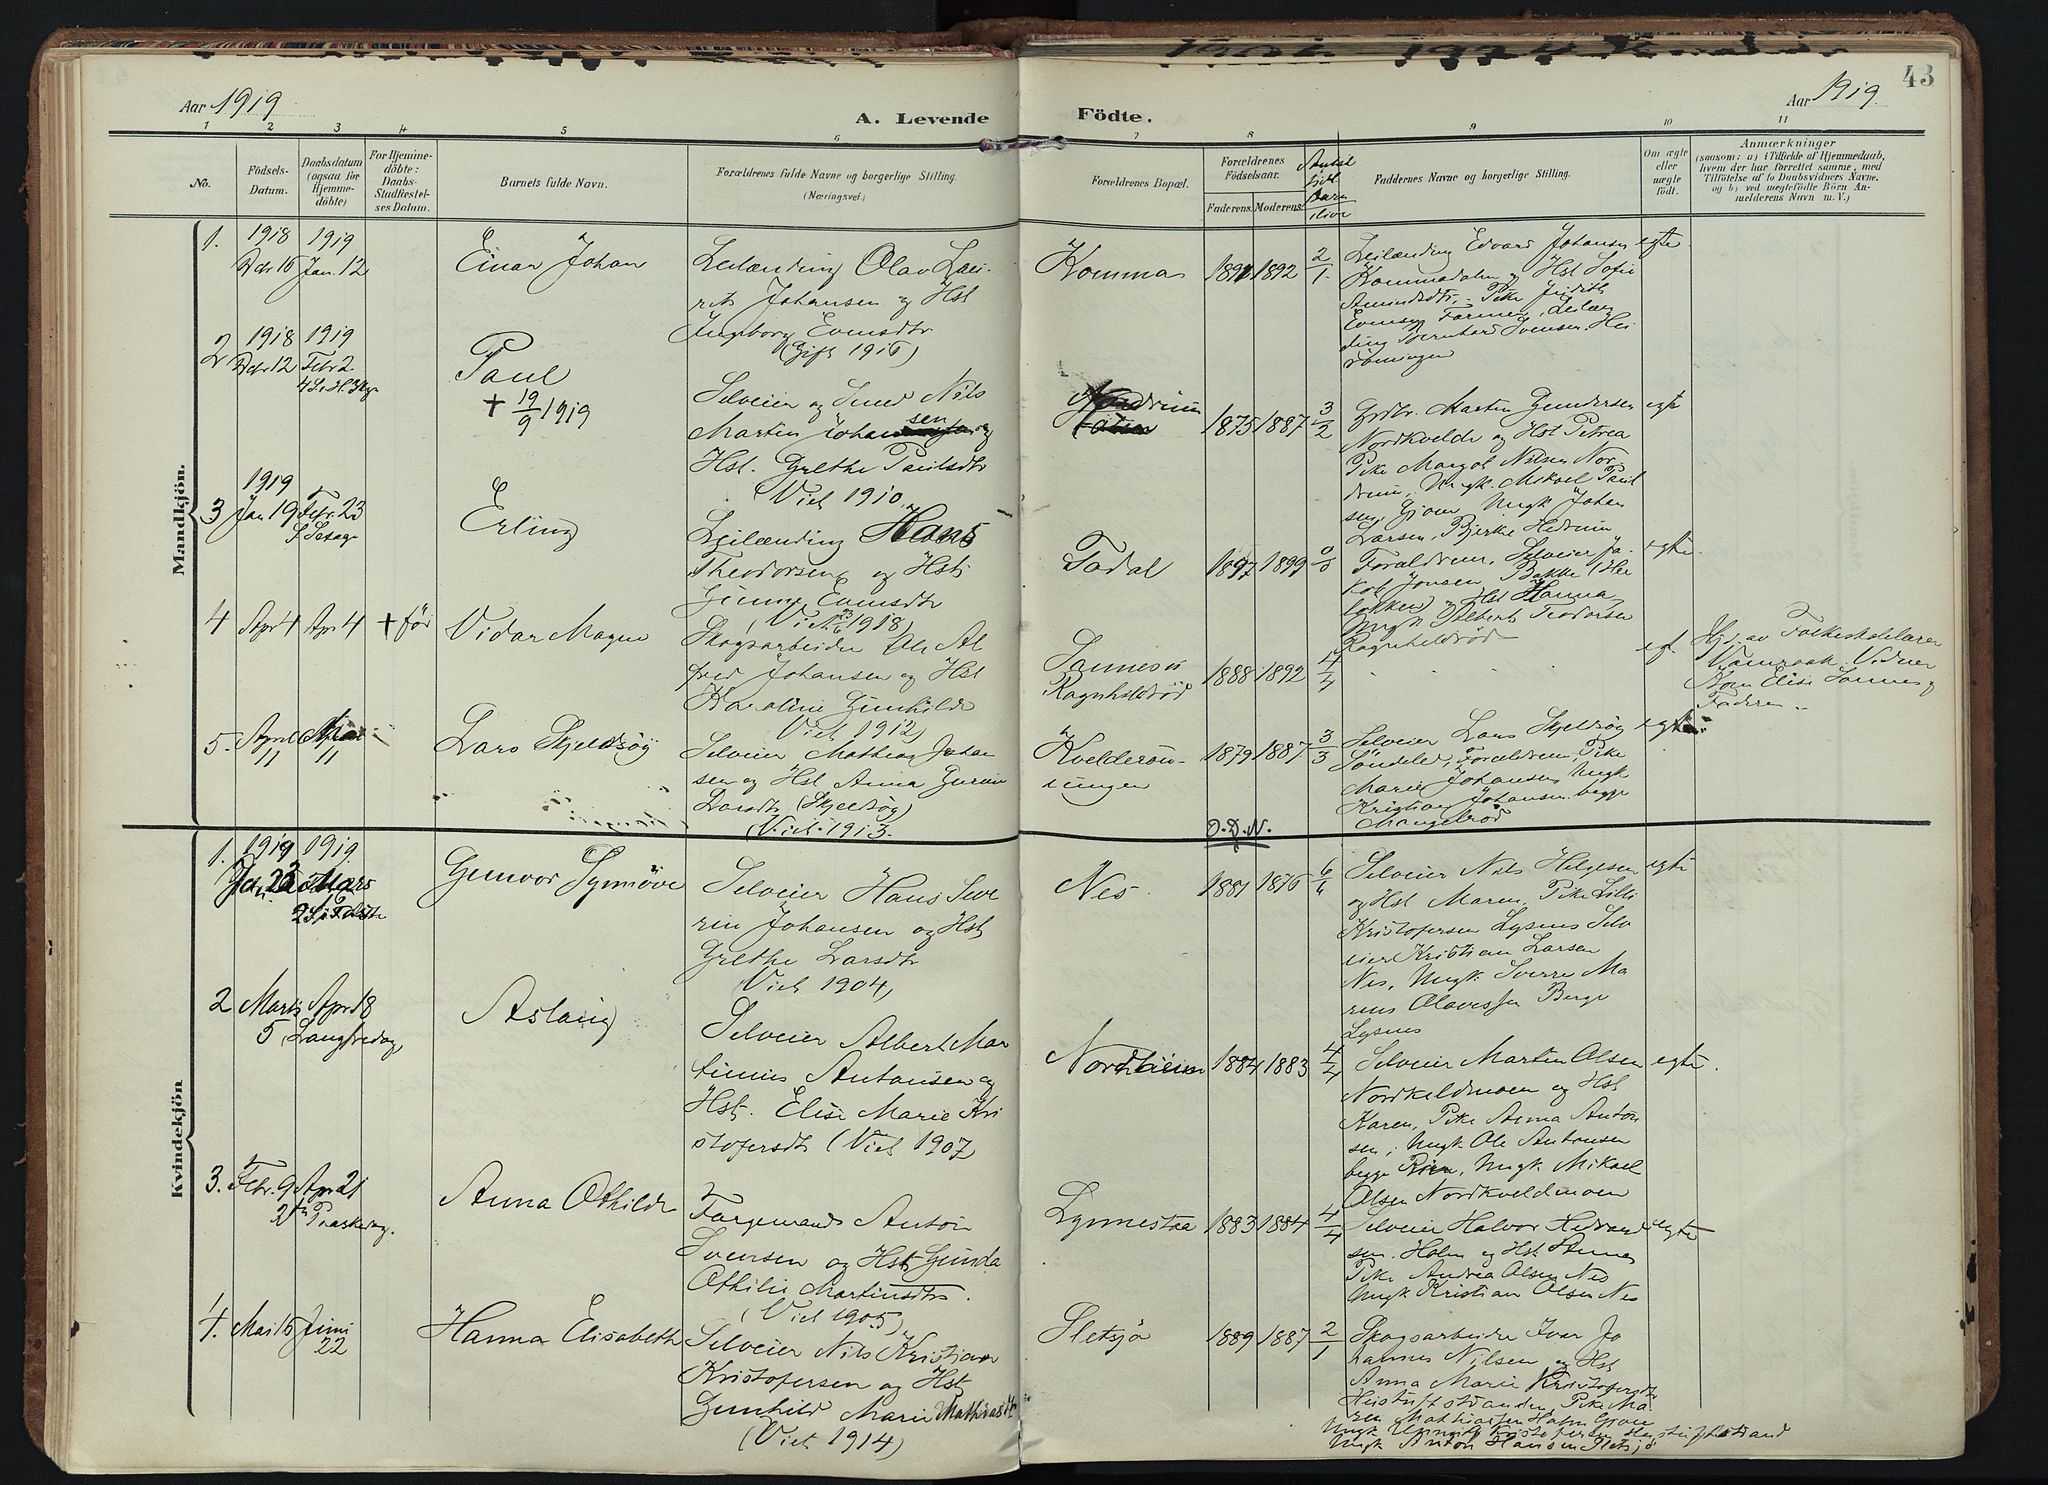 43
Aar 1919
A. Levende
Födte.
Aar 1919.
1 2 3 4 5 6 7 8 9 10 11
No.
Födsels-
Datum.
Daabsdatum
(ogsaa for
Hjemme-
döbte)
For Hjemme-
döbte:
Daabs-
Stadfæstel-
ses Datum.
Barnets fulde Navn.
Forældrenes fulde Navne og borgerlige Stilling.
(Næringsvei.)
Forældrenes Bopæl.
Forældrenes
Födselsaar.
Faderens.
Moderens.
Antal
födt
Barn
ilive
Faddernes Navne og borgerlige Stilling.
Om ægte
eller
uægte
födt.
Anmærkninger
(saasom: a) i Tilfælde af Hjemmedaab,
hvem der har forrettet samme, med
Tilföielse af to Daabsvidners Navne,
og b) ved uægtefödte Börn An-
melderens Navn m. V.)
Mandkjön.
1.
1918
Dcbr 15
1919
Jan. 12
Einar Johan
Leilænding Olav Lau-
rits Johansen og Hst
Ingborg Evensdtr
(Gift 1916)
Komma
1891 1892
2/1.
Leilænding Edvard Johansen
Kommadalen og Hst Sofie
Amundsdtr, Pike Judith
Evensen Farmen, Leilæn
ding Bernhard Svensen, Hei
röningen
egte
2
1918
Dcbr 12
1919
Febr 2
Paul
+ 19/9 1919
Selveier og Smed Nils
Martin Johansen og
Hst. Grethe Paulsdtr
Viet 1910
Nordrum
1875 1887
3/2
Grdbr. Martin Gundersen
Nordkvelde og Hst Petrea
Pike Margot Nilsen Nor-
drum, Ungk. Mikael Paul
sen, Gjone, Ungk Johan
Larsen, Bjerke Hedrum
egte
3
1919
Jan 19
Febr. 23
Erling
Leilænding Hans
Theodorsen og Hst
Gunne Evensdtr
Viet 1918)
Fadal
1897 1899
0/0
Forældrene, Selveier Ja-
kob Jonsen Bakke (Hei
løkken) og Hst Hanna,
Ungk Albert Teodorsen
Ragnhildröd
egte
4
Apr 4
Apr 4
+ för
Vidar Magne
Skogsarbeider Ole Al
fred Johansen og Hst
Karoline Gunhilde
Viet 1912)
Sannes u
Ragnhildröd
1888 1892
4/4
egt.
Hjd. av Folkeskolelærer
Vamraak. Vidner
Jom Elise Sannes og
Faderen
5.
April
11
Mai
11
Lars Skjeldsøg
Selveier Mathias Johan
sen og Hst Anna Gurine
Larsdtr (Skjelsøg)
(Viet 1913.
Kvelderön-
ningen
1879 1887
3/3
Selveier Lars Skjeldsøg
Söndeled, Forældrene, Pike
Marie Johansen, Ungk
Kristian Johansen begge
Mangelröd
egte
Kvindekjön
D. D. N.
1.
1919
1919
Mars
Gunvor Synnöve
Selveier Hans Seve
rin Johansen og Hst
Grethe Larsdtr
Viet 1904)
Nes
1881 1876
6/6
Selveier Nils Helgesen
og Hst Maren, Pike Lilli
Kristofersen Lysnes Selv
eier Kristian Larsen
Nes, Ungk Sverre Ma
rius Olavessen Berge
Lysnes
egte
2
Marts
5
Apr 18
Langfredag
Aslaug
Selveier Albert Mar
tinius Antonsen og
Hst. Elise Marie Kri
stofersdtr (Viet 1907)
Nordheim
1884 1883
4/4
Selveier Martin Olsen
Nordkveldmoen og Hst
Karen, Pike Anna Anton
sen, Ungk Ole Antonsen
begge Röen, Ungk. Mikael
Olsen Nordkveldmoen
egte.
3.
Febr. 9
Apr 21
2den Paaskedag.
Anna Othilde
Fargemand Anton
Svensen og Hst Gunda
Othilie Martinsdtr.
(Viet 1905)
Lynnestaa
1883 1884
4/4
Selveier Halvor Hedvard
sen. Holm og Hst Anne
Pike Andrea Olsen Nes
Ungk Kristian Olsen Nes
egte
4.
Mai 15
Juni
22
Hanna Elisabeth
Selveier Nils Kristian
Kristofersen og Hst
Gunhild Marie Mathiasdtr
(Viet 1914)
Sletsjö
1889 1887
2/1
Skogsarbeider Ivar Jo
hannes Nilsen og Hst
Anna Marie Kristofersdtr
Heistuftstranden, Pike Ma
ren Mathiasen Holm Gjone
Ungk Kristofersen Heistuftstrand
Ungk Anton Hansen Sletsjö